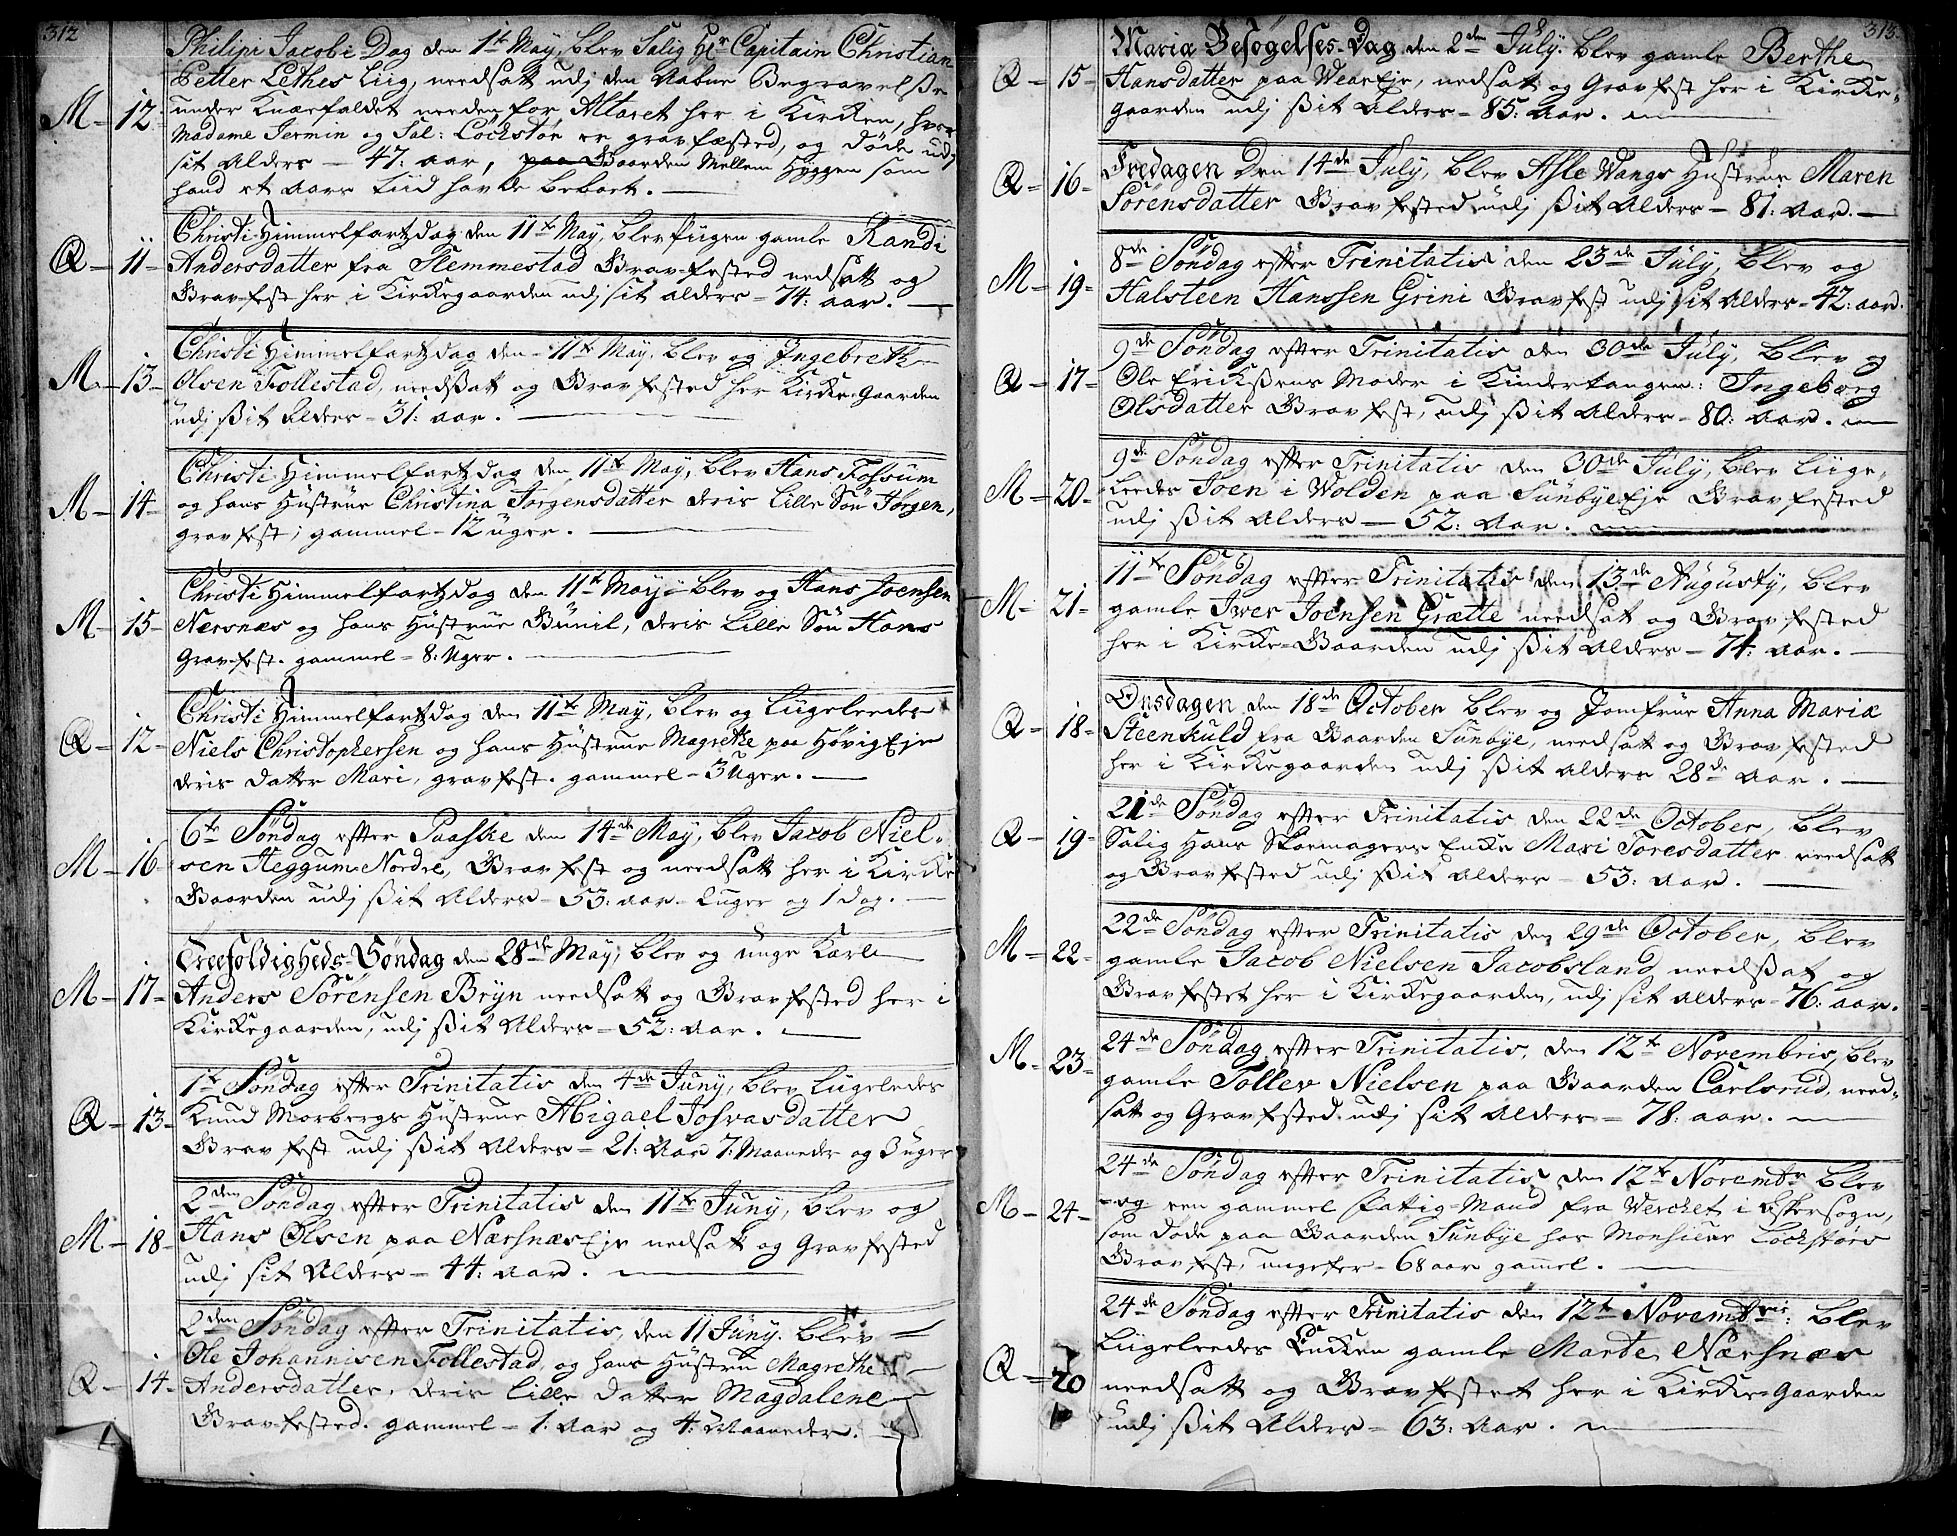 312
Philipi Jacobi Dag den 1te May, blev Salig Hr Capitain Christian
Petter Lethes Liig, needsatt udj den Aabne Begravelse
M – 12. under Knæfaldet needenfor Altaret her i Kirken, hvor
Madame Jermin og Sal: Lochstør er gravfæsted, og døde udj
sit Alders – 47: aar, paa Gaarden Mellem Hyggen som
hand et Aars Tiid havde beboet. —
Christi Himmelfartzdag den 11te May, blev gamle Randi
Q – 11 – Andersdatter fra Slemmestad Gravfested nedsatt og
Gravfest her i Kirkegaarden udj sit alders – 74: aar. —
Christi Himmelfartzdag den – 11te May, blev og Ingebreth
M – 13 – Olsen Follestad, needsatt og Gravfested her Kirke-Gaarden
udj ßit Alders – 31: aar. —
Christi Himmelfartz dag den 11te May, blev Hans Fossum
M – 14 – og hans Hustrue Christina Jørgensdatter deris Lille Søn Jørgen,
gravfest, gammel – 12 uger. —
Christi Himmelfartzdag den 11te May – blev og Hans Joensen
M – 15 – Næsnæs og hans Hustrue Gunil, deris Lille Søn Hans
Gravfest. gammel – 8: Uger. —
Christi Himmelfartzdag den 11te May, blev og Liigeleedes
Q – 12 – Niels Christophersen og hans Hustrue Magrethe paa HøvigEje
deris Datter Mari, gravfest. gammel – 3 Uger. —
6te Søndag efter Paaske den 14de May, blev Jacob Niel-
M – 16 – sen Heggum Nordre, Gravfest og needsatt her i Kirke
Gaarden udj ßit Alders – 53: aar – 2 uger og 1 dag. —
Treefoldigheds-Søndag den 28de May, blev og unge Karl
M – 17 – Anders Sørensen Bryn needsatt og Gravfested her i
Kirkegaarden, udj ßit Alders – 52: Aar. —
1te Søndag efter Trinitatis den 4de Juny, blev Liigeledes
Q – 13 – Knud Morbergs Hustrue Abigael Josvasdatter
Gravfest udj ßit Alders – 21: Aar 7: Maaneder og 3 uger
2den Søndag efter Trinitatis den 11te Juny, blev og
M – 18 – Hans Olsen paa NæsnæsEje nedsatt og Gravfested
udj sit Alders – 44: Aar. —
2den Søndag efter Trinitatis, den 11 Juny. blev
Ole Johannisen Follestad, og hans Hustru Magrethe
Q – 14 – Andersdatter, deris Lille datter Magdalene
Gravfested. gammel – 1: Aar og 4: Maaneder. —
313.
Mariæ Besøgelses-Dag den 2den July. blev gamle Berthe
Q – 15 – Hansdatter paa WearEje, nedsatt og Gravfest her i Kirke-
gaarden udj ßit Alders – 85: Aar. —
Fredagen den 14de July, blev Asle Wangs Hustrue Maren
Q – 16 – Sørensdatter Gravfested udj ßit Alders – 81: Aar. —
8de Søndag efter Trinitatis den 23de July, blev og
M – 19 – Halsteen Hanssen Grini Gravfest udj sit Alders – 42: aar.
9de Søndag efter Trinitatis den 30de July, blev og
Q – 17 – Ole Erickßens Moder i Kindertangen: Ingeborg
Olsdatter Gravfest, udj ßit Alders – 80: Aar. —
9de Søndag efter Trinitatis den 30de July, blev Liige-
M – 20 – Leedes Joen i Wolden paa SunbyeEje Gravfested
udj ßit Alders – 52: Aar. —
11te Søndag efter Trinitatis den 13de Augusty, blev
M – 21 – gamle Iver Joensen Grætte needsatt og Gravfested
her i Kirke-Gaarden udj ßit Alders – 74: Aar. —
Onsdagen den 18de October blev og Jomfrue Anna Maria
Q – 18 – Steenkuld fra Gaarden Sunbye, needsatt og Gravfested
her i Kirkegaarden udj ßit Alders 28de Aar. —
21de Søndag efter Trinitatis den 22de October, blev
Q – 19 – Salig Hans Skoemagers Enke Mari Toresdatter needsatt
og Gravfested udj ßit Alders – 53: Aar. —
22de Søndag efter Trinitatis den 29de October, blev
M – 22 – gamle Jacob Nielsen Jacobsland needßat og
Gravfestet her i Kirkegaarden, udj sit Alders – 76: aar.
24de Søndag efter Trinitatis, den 12te Novembris, blev
M – 23 – gamle Tollev Nielsen paa Gaarden Carlsrud, need-
satt og Gravfested. udj sit Alders – 78: aar. —
24de Søndag efter Trinitatis, den 12te Novembr blev
M – 24 – og een gammel Fattig-Mand fra Verchet i Askersogn,
som døde paa Gaarden Sunbye hos Monsieur Lochstørs
Gravfest, ungefer – 68 aar gamel. —
24de Søndag efter Trinitatis den 12te Novembris: blev
Liigeleedes Encken gamle Marte Næsnæs
Q – 20 needsatt og Gravfestet her i Kirke-Gaarden
udj ßit Alders – 63: Aar. —